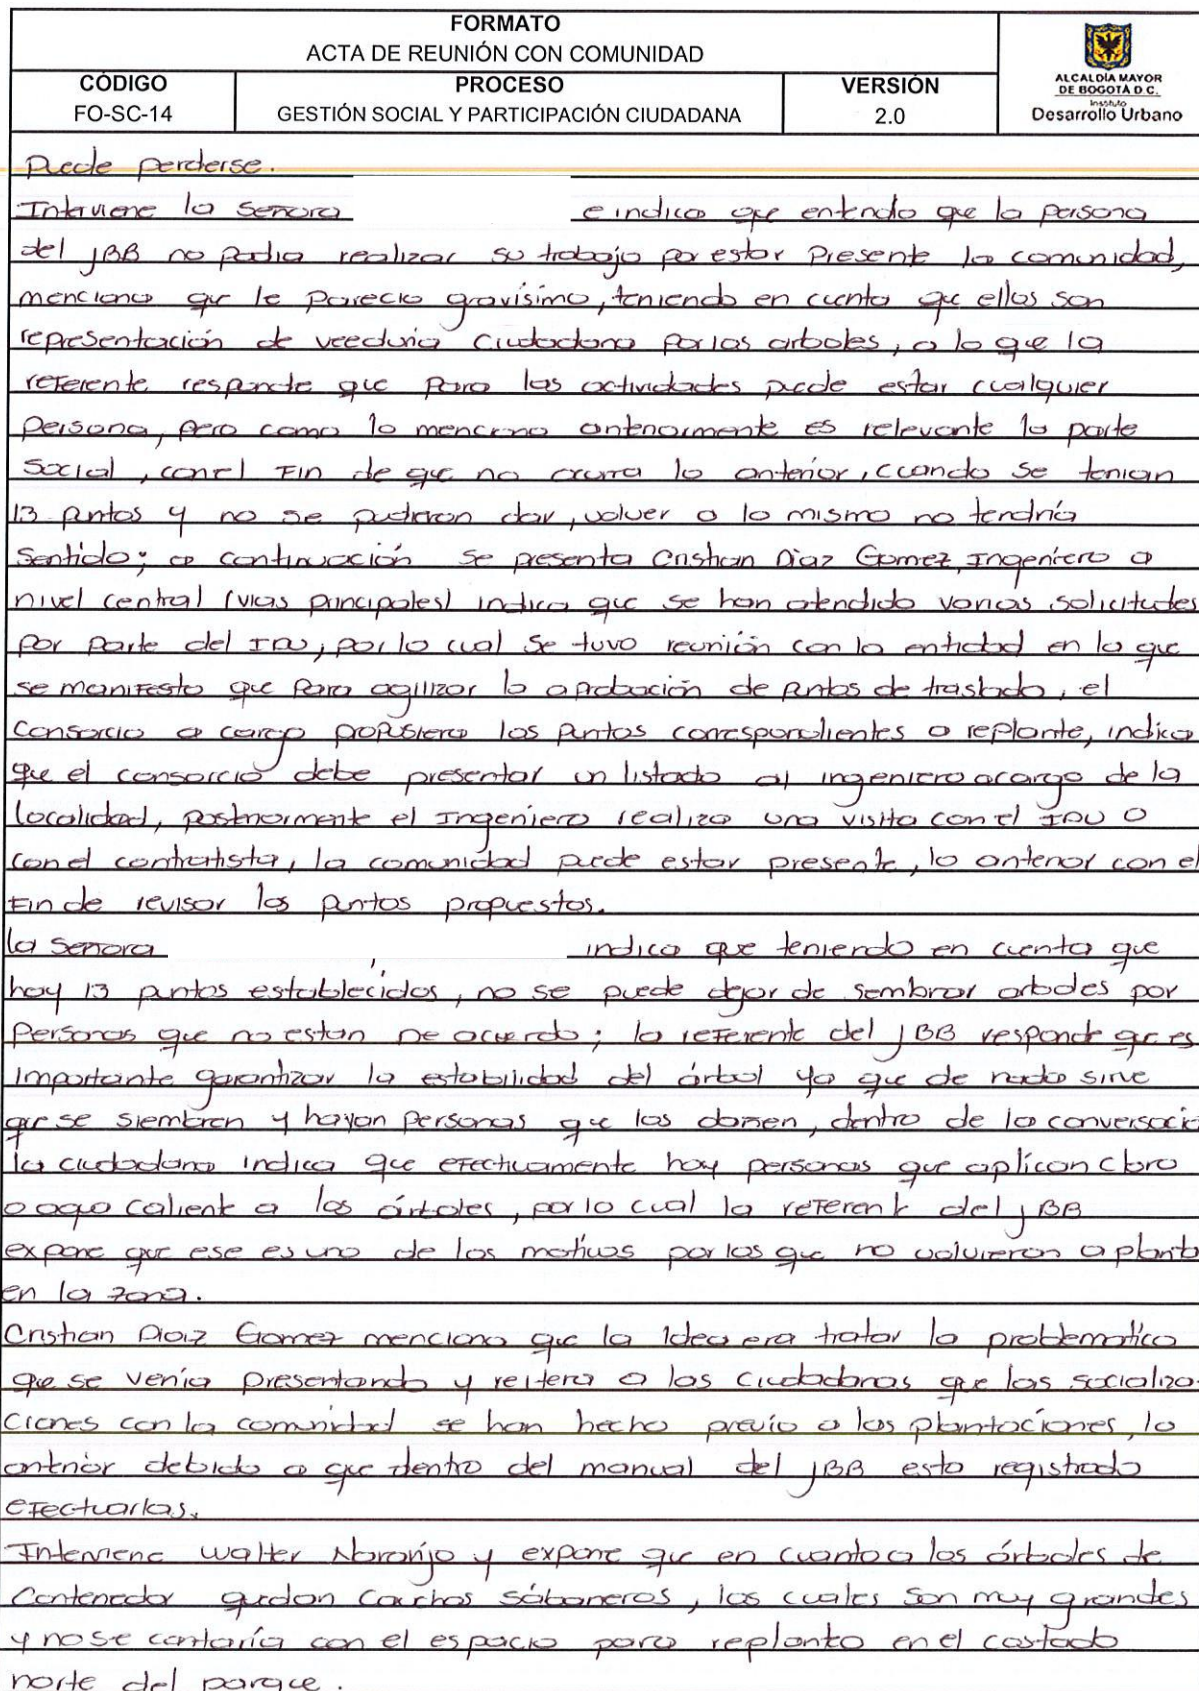 FORMATO
ACTA DE REUNIÓN CON COMUNIDAD
CÓDIGO
FO-SC-14
PROCESO
GESTIÓN SOCIAL Y PARTICIPACIÓN CIUDADANA
VERSIÓN
2.0
ALCALDÍA MAYOR
DE BOGOTÁ D.C.
Instituto
Desarrollo Urbano
Puede perderse.
Interviene la señora e indica que entendo que la persona
del JBB no podia realizar su trabajo por estar presente la comunidad,
menciona que le parecio gravísimo, teniendo en cuenta que ellos son
representación de veeduria ciudadana por los arboles, a lo que la
referente responde que para las actividades puede estar cualquier
persona, pero como lo menciono anteriormente es relevante la parte
social, con el fin de que no ocurra lo anterior, cuando se tenian
13 puntos y no se pudieron dar, volver a lo mismo no tendría
sentido; a continuación se presenta Cristhian Diaz Gomez, Ingeniero a
nivel central (vias principales) indica que se han atendido varias solicitudes
por parte del IDU, por lo cual se tuvo reunión con la entidad en la que
se manifesto que para agilizar la aprobación de puntos de traslado, el
consorcio a cargo propusiera los puntos correspondientes a replante, indica
que el consorcio debe presentar un listado al ingeniero acargo de la
localidad, posteriormente el Ingeniero realiza una visita con el IDU o
con el contratista, la comunidad puede estar presente, lo anterior con el
fin de revisar los puntos propuestos.
la señora indica que teniendo en cuenta que
hay 13 puntos establecidos, no se puede dejar de sembrar arboles por
personas que no estan de acuerdo; la referente del JBB responde que es
importante garantizar la estabilidad del árbol ya que de nada sirve
que se siembren y hayan personas que los dañen, dentro de la conversació
la ciudadana indica que efectivamente hay personas que aplican cloro
o agua caliente a los árboles, por lo cual la referente del JBB
expone que ese es uno de los motivos por los que no volvieron a planta
en la zona.
Cristhian Diaz Gomez menciona que la idea era tratar la problematica
que se venía presentando y reitera a las ciudadanas que las socializa-
ciones con la comunidad se han hecho previo a las plantaciones, lo
anterior debido a que dentro del manual del JBB esta registrado
efectuarlas.
Interviene Walter Naranjo y expone que en cuanto a los árboles de
Contenedor quedan Cauchos sábaneros, los cuales son muy grandes
y no se contaría con el espacio para replanto en el costado
norte del parque.